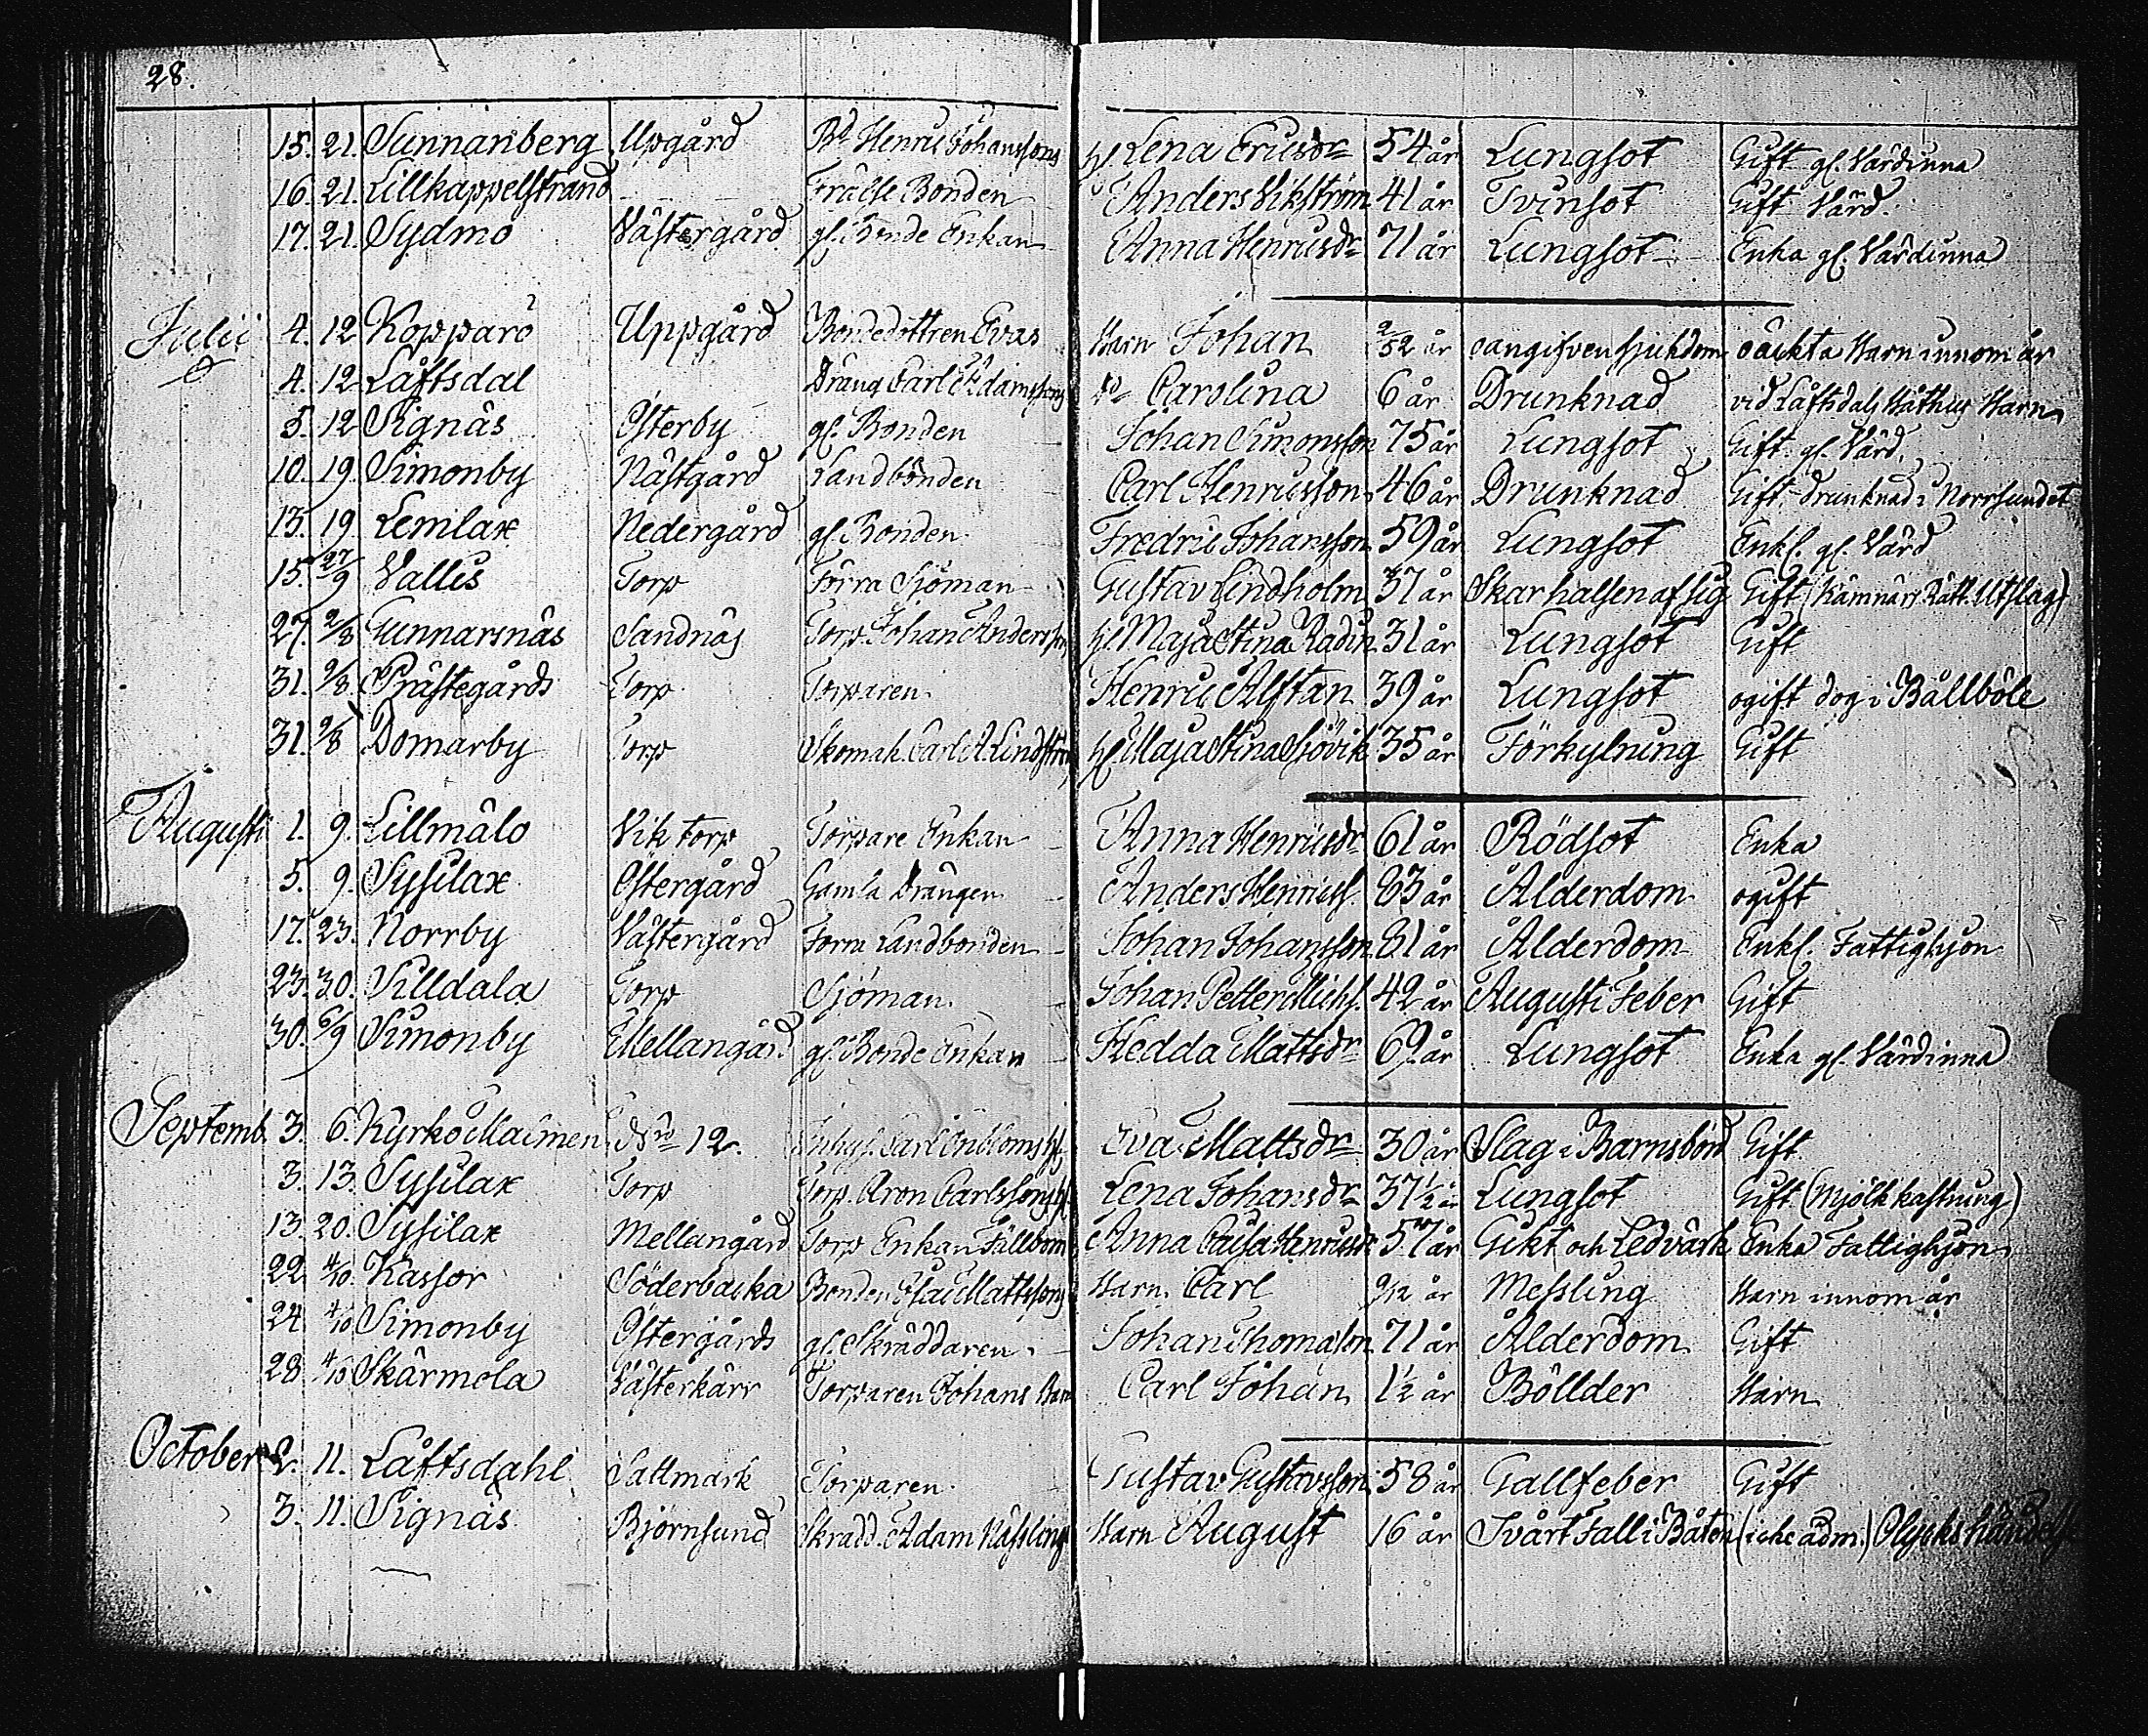 28.
15. 21. Sunnanberg Upgård Bd Henric Johanssons H. Lena Ericsdr 54 år Lungsot Gift gl. Värdinna
16. 21. Lillkappelstrand Frälse Bonden Anders Vikström 41 år Tvinsot Gift Värd.
17. 21. Sydmo Västergård gl. Bonde Enkan Anna Henricsdr 71 år Lungsot Enka gl. Värdinna
Julii 4. 12 Kopparö Uppgård Bondedottren Evas Barn Johan 2/52 år oangifven sjukdom oäckta Barn innom år
4. 12 Låftsdal Dräng Carl Adamssons do Carolina 6 år Drunknad vid Låftsdals Båthus Barn
5. 12 Signäs Österby gl. Bonden Johan Simonsson 75 år Lungsot Gift gl. Värd.
10. 19. Simonby Nästgård Landbonden Carl Henricsson 46 år Drunknad Gift drunknad i Norrsundet
13. 19. Lemlax Nedergård gl. Bonden Fredric Johansson 59 år Lungsot Enkl. gl. Värd
15. 27/9 Vallis Torp Förra Sjöman Gustav Lindholm 37 år Skar halsen af sig Gift (Kämnärs Rätt. Utslag)
27. 2/8 Gunnarsnäs Sandnäs Torp. Johan Anderssons H. Maja Stina Radin 31 år Lungsot Gift
31. 9/8 Prästegårds Torp Torparen Henric Alstan 39 år Lungsot ogift dog i Bållböle
31. 9/8 Domarby Torp Skomak. Carl A Lindströms H. Maja Stina Sjövik 35 år Förkylning Gift
Augusti 1. 9. Lillmälo Vik torp Torpare Enkan Anna Henricsdr 61 år Rödsot Enka
5. 9. Sysilax Östergård Gamla Drängen Anders Henrics. 83 år Ålderdom ogift
17. 23. Norrby Västergård Forra Landbonden Johan Johansson 81 år Ålderdom Enkl. Fattighjon
23. 30. Silldala Torp Sjöman Johan Petter Michs. 42 år Augusti Feber Gift
30. 6/9 Simonby Mellangård gl. Bonde Enkan Hedda Mattsdr 69 år Lungsot Enka gl. Värdinna
Septemb. 3. 6. Kyrko Malmen No 12. Inhys. Carl Enbloms H. Eva Mattsdr 30 år Slag i Barnsbörd Gift
3. 13. Sysilax Torp Torp. Aron Carlssons H. Lena Johansdr 37 1/2 år Lungsot Gift (Mjölkkastning)
13. 20. Sysilax Mellangård Torp Enkan Fällbom Anna Caisa Henricsdr 57 år Gikt och Ledvärk Enka Fattighjon
22 4/10. Kassor Söderbacka Bonden Isac Mattssons Barn Carl 9/12 år Messling Barn innom år
24 4/10 Simonby Östergårds gl. Skräddaren Johan Thomasson 71 år Ålderdom Gift
28 4/10 Skärmola Västerkärr Torparen Johans Barn Carl Johan 1 1/2 år Böllder Barn
October 2. 11. Låftsdahl Sattmark Torparen Gustav Gustavsson 58 år Gallfeber Gift
3. 11. Signäs Björnsund Skrädd. Adam Nässlings Barn August 16 år Svårt Fall i Båten (icke adm.) Olyckshändelse